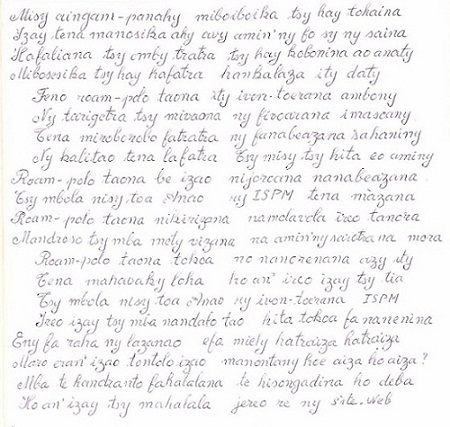 Misy aingam-panahy miboiboika tsy hay tohaina
Izay tena manosika ahy avy amin'ny fo sy ny saina
Hafaliana tsy omby tratra tsy hay hobonina ao anaty
Mibosesika tsy hay hafatra hankalaza ity daty
Feno roam-polo taona ity ivon-toerana ambony
Ny tarigetra tsy mivaona ny fivoarana imasoany
Tena miroborobo fatratra ny fanabeazana sahaniny
Ny kalitao tena lafatra Tsy misy tsy hita eo aminy
Roam-polo taona be izao nijoroana nanabeazana
Tsy mbola nisy toa Anao ny ISPM tena mazana
Roam-polo taona nikirizana namolavola ireo tanora
Mandroso tsy mba mety vizana na amin'ny sarotra na mora
Roam-polo taona tokoa no nanorenana azy ity
Tena mahavaky loha ho an' ireo izay tsy tia
Tsy mbola nisy toa Anao ny ivon-toerana ISPM
Ireo izay tsy mba nandafo tao hita tokoa fa nanenina
Eny fa raha ny lazanao efa miely hatraiza hatraiza
Maro eran' izao tontolo izao manontany hoe aiza ho aiza?
Mba te handranto fahalalana te hisongadina ho deba
Ho an' izay tsy mahalala jereo re ny site. Web